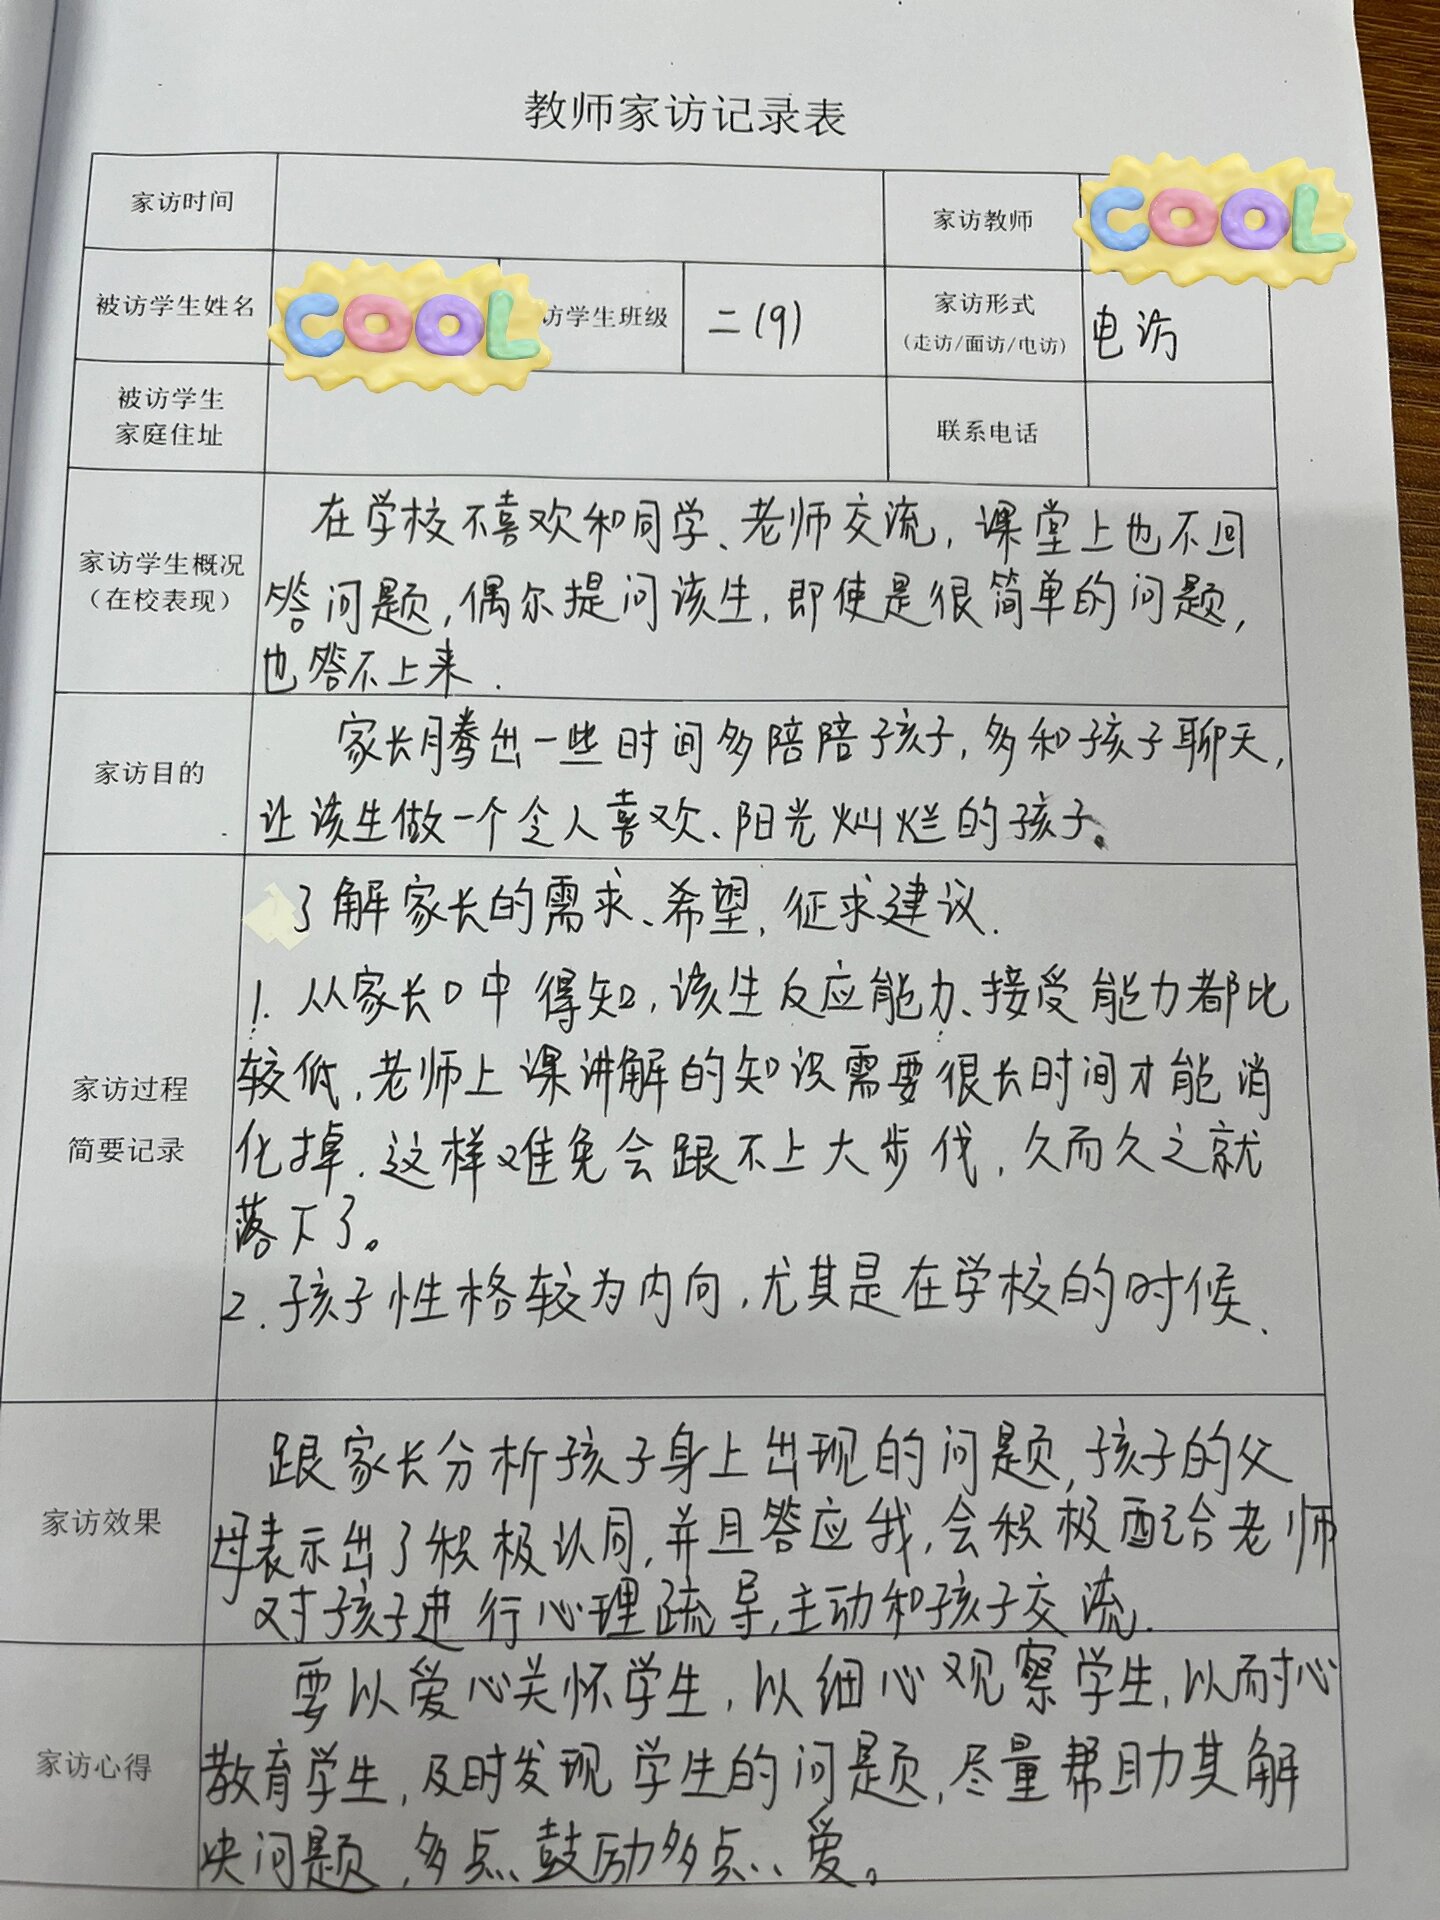 教师家访记录表
家访时间
家访教师
COOL
被访学生姓名
COOL
访学生班级
二(9)
家访形式
(走访/面访/电访)
电访
被访学生
家庭住址
联系电话
家访学生概况
(在校表现)
在学校不喜欢和同学、老师交流，课堂上也不回
答问题，偶尔提问该生，即使是很简单的问题，
也答不上来.
家访目的
家长腾出一些时间多陪陪孩子，多和孩子聊天，
让该生做一个令人喜欢、阳光灿烂的孩子。
家访过程
简要记录
了解家长的需求、希望，征求建议.
1.从家长口中得知，该生反应能力、接受能力都比
较低，老师上课讲解的知识需要很长时间才能消
化掉.这样难免会跟不上大步伐，久而久之就
落下了。
2.孩子性格较为内向，尤其是在学校的时候.
家访效果
跟家长分析孩子身上出现的问题，孩子的父
母表示出了积极认同，并且答应我，会积极配合老师
对孩子进行心理疏导，主动和孩子交流.
家访心得
要以爱心关怀学生，以细心观察学生，以耐心
教育学生，及时发现学生的问题，尽量帮助其解
决问题，多点鼓励多点爱。